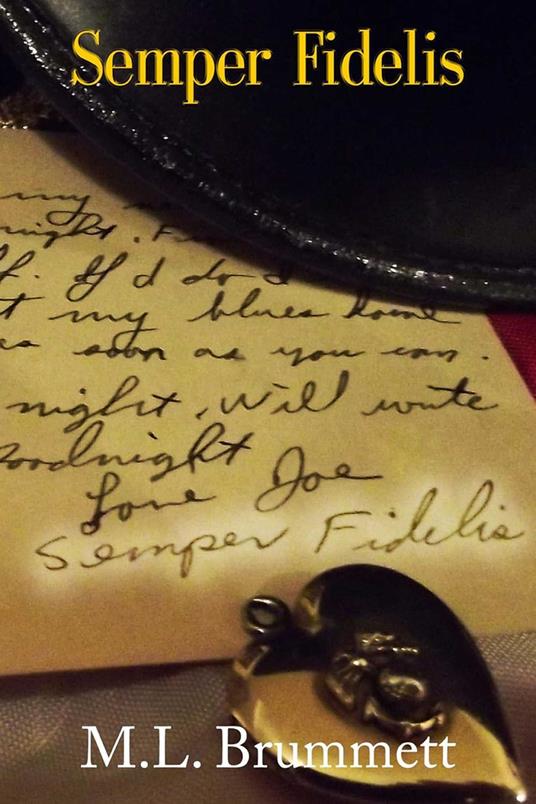 Semper Fidelis
my
night.
If I do
t my blues home
as soon as you can.
night, Will write
Goodnight
Love Joe
Semper Fidelis
M.L. Brummett